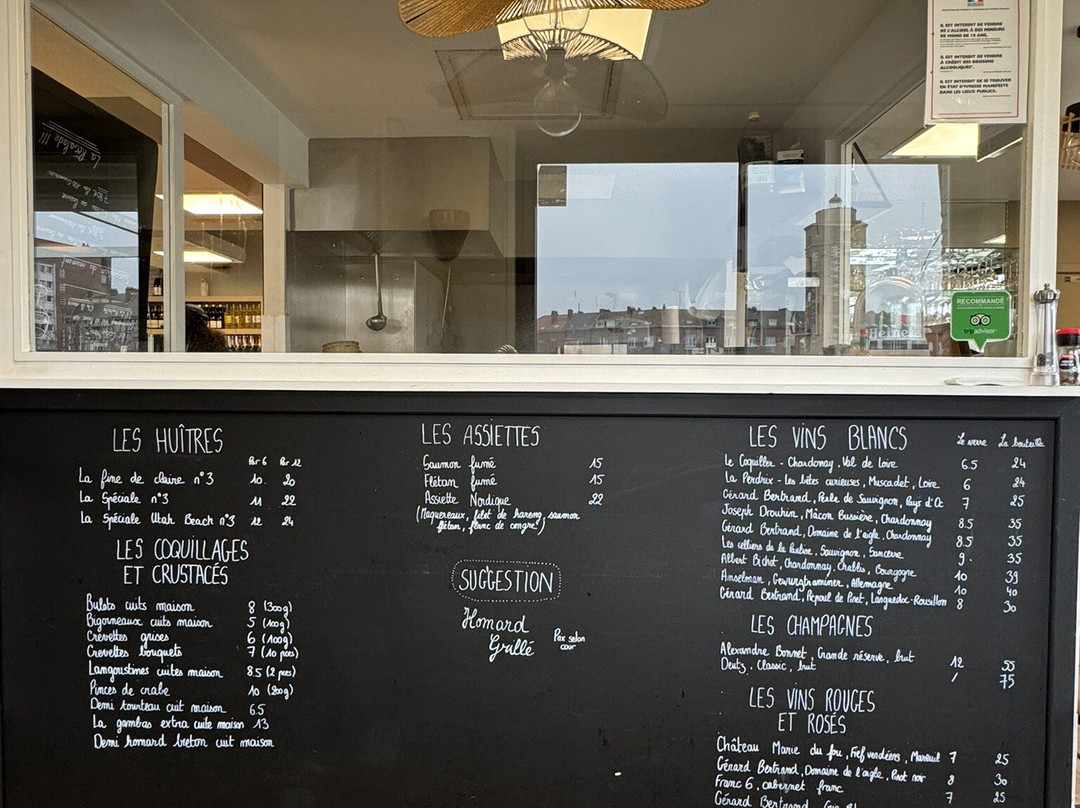 IL EST INTERDIT DE VENDRE
DE L'ALCOOL À DES MINEURS
DE MOINS DE 18 ANS.
IL EST INTERDIT DE VENDRE
À CRÉDIT DES BOISSONS
ALCOOLIQUES
IL EST INTERDIT DE SE TROUVER
EN ÉTAT D'IVRESSE MANIFESTE
DANS LES LIEUX PUBLICS.
RECOMMANDÉ
tripadvisor
Heineken
LES HUÎTRES
Par 6 Par 12
La fine de claire n°3 10. 20
La Spéciale n°3 11 22
La Spéciale Utah Beach n°3 12 24
LES COQUILLAGES
ET CRUSTACÉS
Bulots cuits maison 8 (300g)
Bigorneaux cuits maison 5 (100g)
Crevettes grises 6 (100g)
Crevettes bouquets 7 (10 pces)
Langoustines cuites maison 8.5 (2 pces)
Pinces de crabe 10 (200g)
Demi tourteau cuit maison 6.5
La gambas extra cuite maison 13
Demi homard breton cuit maison
LES ASSIETTES
Saumon fumé 15
Flétan fumé 15
Assiette Nordique 22
(Maquereaux, filet de hareng, saumon
flétan, flanc de congre)
SUGGESTION
Homard
Grillé
Prix selon
cour
LES VINS BLANCS
Le verre La bouteille
Le Coquiller - Chardonnay, Val de Loire 6.5 24
La Perdrix - Les bêtes curieuses, Muscadet, Loire 6 24
Gérard Bertrand, Perle de Sauvignon, Pays d'Oc 7 25
Joseph Drouhin, Mâcon Bussière, Chardonnay 8.5 35
Gérard Bertrand, Domaine de l'aigle, Chardonnay 8.5 35
Les celliers de la, Sauvignon, Sancerre 9. 35
Albert Bichot, Chardonnay, Chablis, Bourgogne 10 39
Anselman, Gewurztraminer, Allemagne 10 40
Gérard Bertrand, Picpoul de Pinet, Languedoc-Roussillon 8 30
LES CHAMPAGNES
Alexandre Bonnet, Grande réserve, brut 12 55
Deutz, Classic, brut / 75
LES VINS ROUGES
ET ROSÉS
Château Marie du fou, Fief vendéens, Mareuil 7 25
Gérard Bertrand, Domaine de l'aigle, Pinot noir 8 30
Franc 6, cabernet franc 7 25
Gérard Bertrand